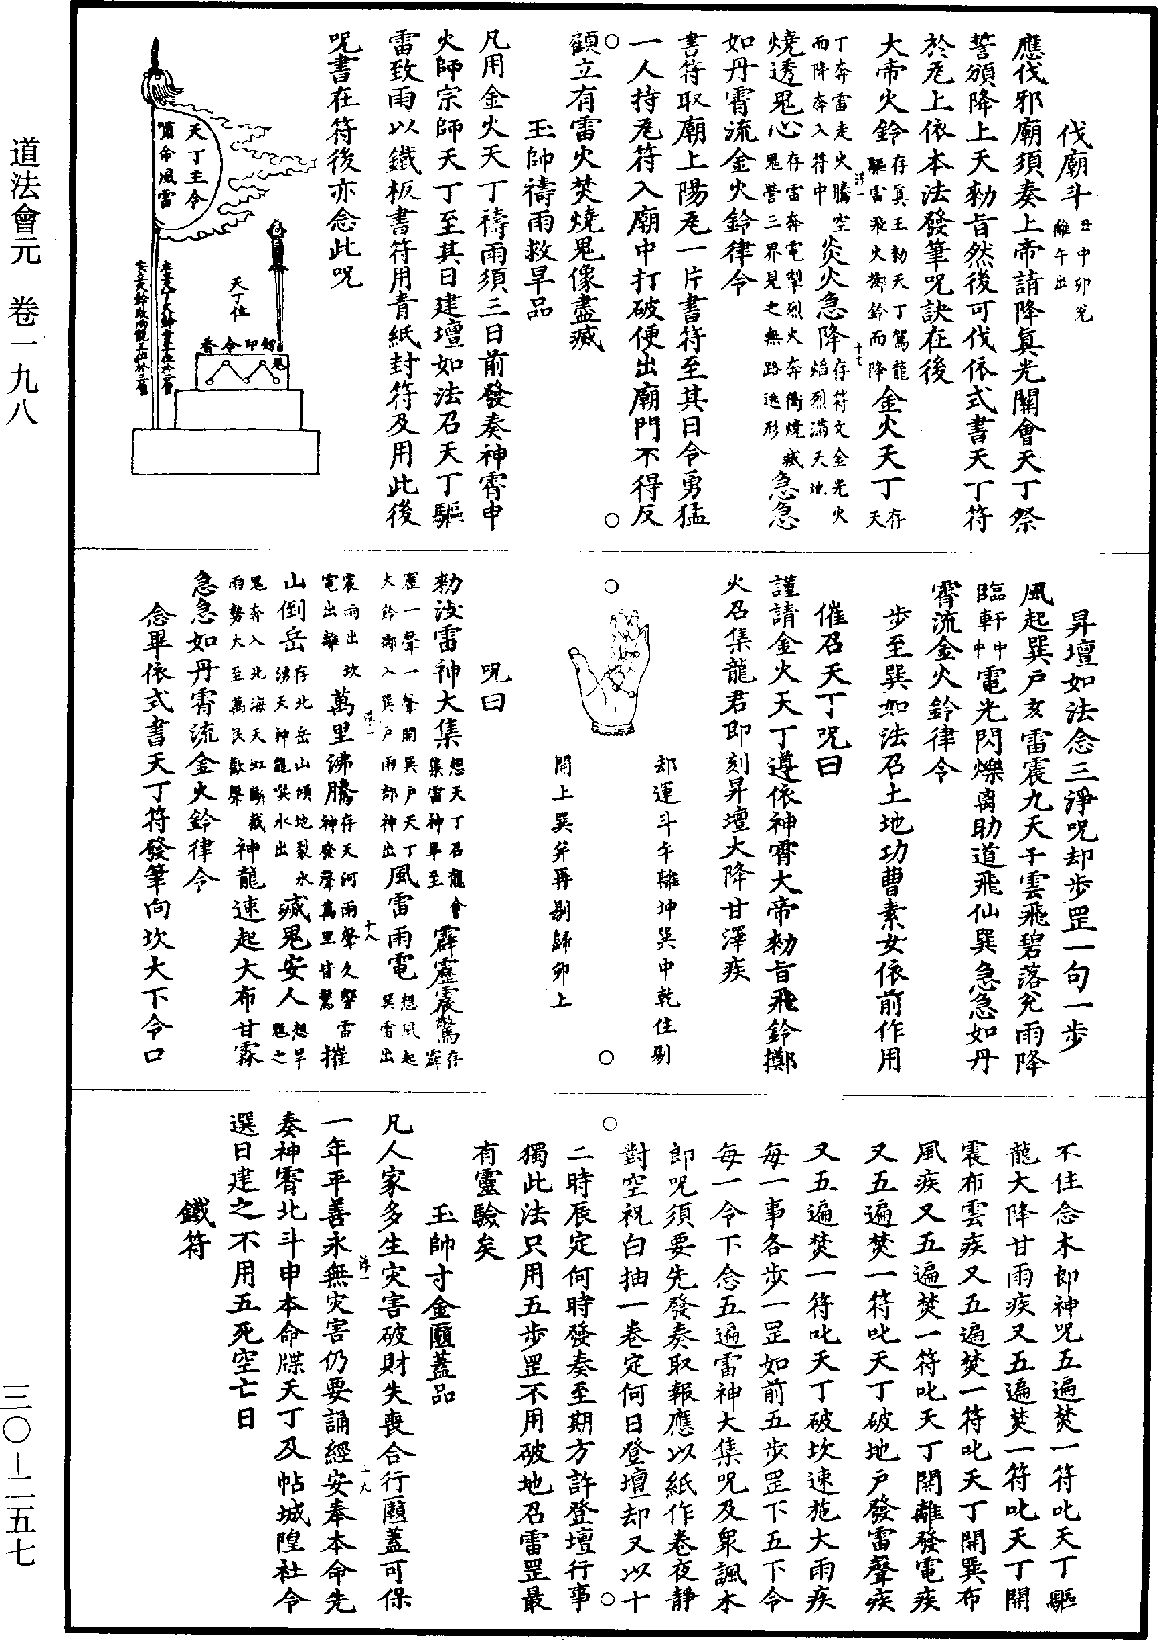 道法會元　卷一九八
三〇－二五七
伐廟斗丑中卯兌離午出
應伐邪廟須奏上帝請降真光關會天丁祭
誓頒降上天勑旨然後可伐依式書天丁符
於瓦上依本法發筆呪訣在後
大帝火鈴存真王勑天丁駕龍驅雷飛火擲鈴而降金火天丁存天
丁奔雷走火騰空而降奔入符中炎火急降存符文金光火焰烈滿天地
燒透鬼心存雷奔電掣烈火奔衝燒鬼營三界見之無路逃形滅急急
如丹霄流金火鈴律令
書符取廟上陽瓦一片書符至其日令勇猛
一人持瓦符入廟中打破便出廟門不得反
顧立有雷火焚燒鬼像盡滅
玉帥禱雨救旱品
凡用金火天丁禱雨須三日前發奏神霄申
火師宗師天丁至其日建壇如法召天丁驅
雷致雨以鐵板書符用青紙封符及用此後
呪書在符後亦念此呪
天丁主令
嘯命風雷
天丁位
香令印劍
昇壇如法念三淨呪却步罡一句一步
風起巽戶亥雷震九天子雲飛碧落兌雨降
臨軒中中電光閃爍离助道飛仙巽急急如丹
霄流金火鈴律令
步至巽如法召土地功曹素女依前作用
催召天丁呪曰
謹請金火天丁遵依神霄大帝勑旨飛鈴擲
火召集龍君即刻昇壇大降甘澤疾
却運斗午離坤巽中乾住剔
開上巽斧再剔歸卯上
呪曰
勑汝雷神大集想天丁召龍會集雷神畢至霹靂震驚存霹
靂一聲一聲開巽戶天丁火鈴擲入巽戶雨部神出風雷雨電想風起巽雷出
震雨出坎電出離萬里沸騰存天河雨聲久聲雷神發聲萬里皆驚摧
山倒岳存北岳山傾地裂水湧天神龍噀水出滅鬼安人想旱魃之
鬼奔入北海天虹斷截雨勢大至萬民歡聲神龍速起大布甘霖
急急如丹霄流金火鈴律令
念畢依式書天丁符發筆向坎大下令口
不住念木郎神呪五遍焚一符叱天丁驅
龍大降甘雨疾又五遍焚一符叱天丁開
震布雲疾又五遍焚一符叱天丁開巽布
風疾又五遍焚一符叱天丁開離發電疾
又五遍焚一符叱天丁破地戶發雷聲疾
又五遍焚一符叱天丁破坎速施大雨疾
每一事各步一罡如前五步罡下五下令
每一令下念五遍雷神大集呪及眾諷木
郎呪須要先發奏取報應以紙作卷夜靜
對空祝白抽一卷定何日登壇却又以十
二時辰定何時發奏至期方許登壇行事
獨此法只用五步罡不用破地召雷罡最
有靈驗矣
玉帥寸金匾蓋品
凡人家多生灾害破財失喪合行匾蓋可保
一年平善永無灾害仍要誦經安奉本命先
奏神霄北斗申本命牒天丁及帖城隍社令
選日建之不用五死空亡日
鐵符